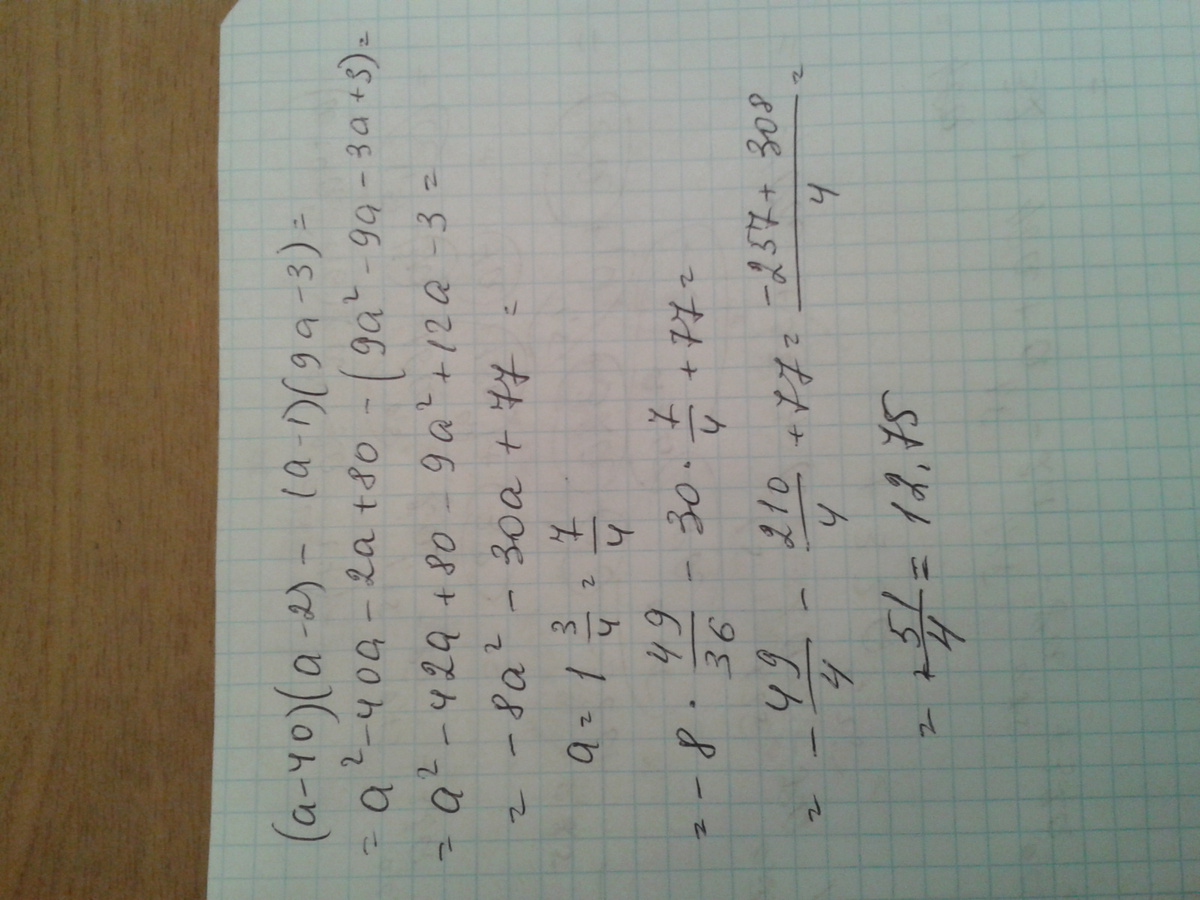 (a-40)(a-2) - (a-1)(9a-3)=
= a² - 40a - 2a + 80 - (9a² - 9a - 3a + 3) =
= a² - 42a + 80 - 9a² + 12a - 3 =
= - 8a² - 30a + 77 =
a = 1 3/4 = 7/4
= - 8 · 49/36 - 30 · 7/4 + 77 =
= - 49/4 - 210/4 + 77 = (-257 + 308)/4 =
= + 51/4 = 12,75